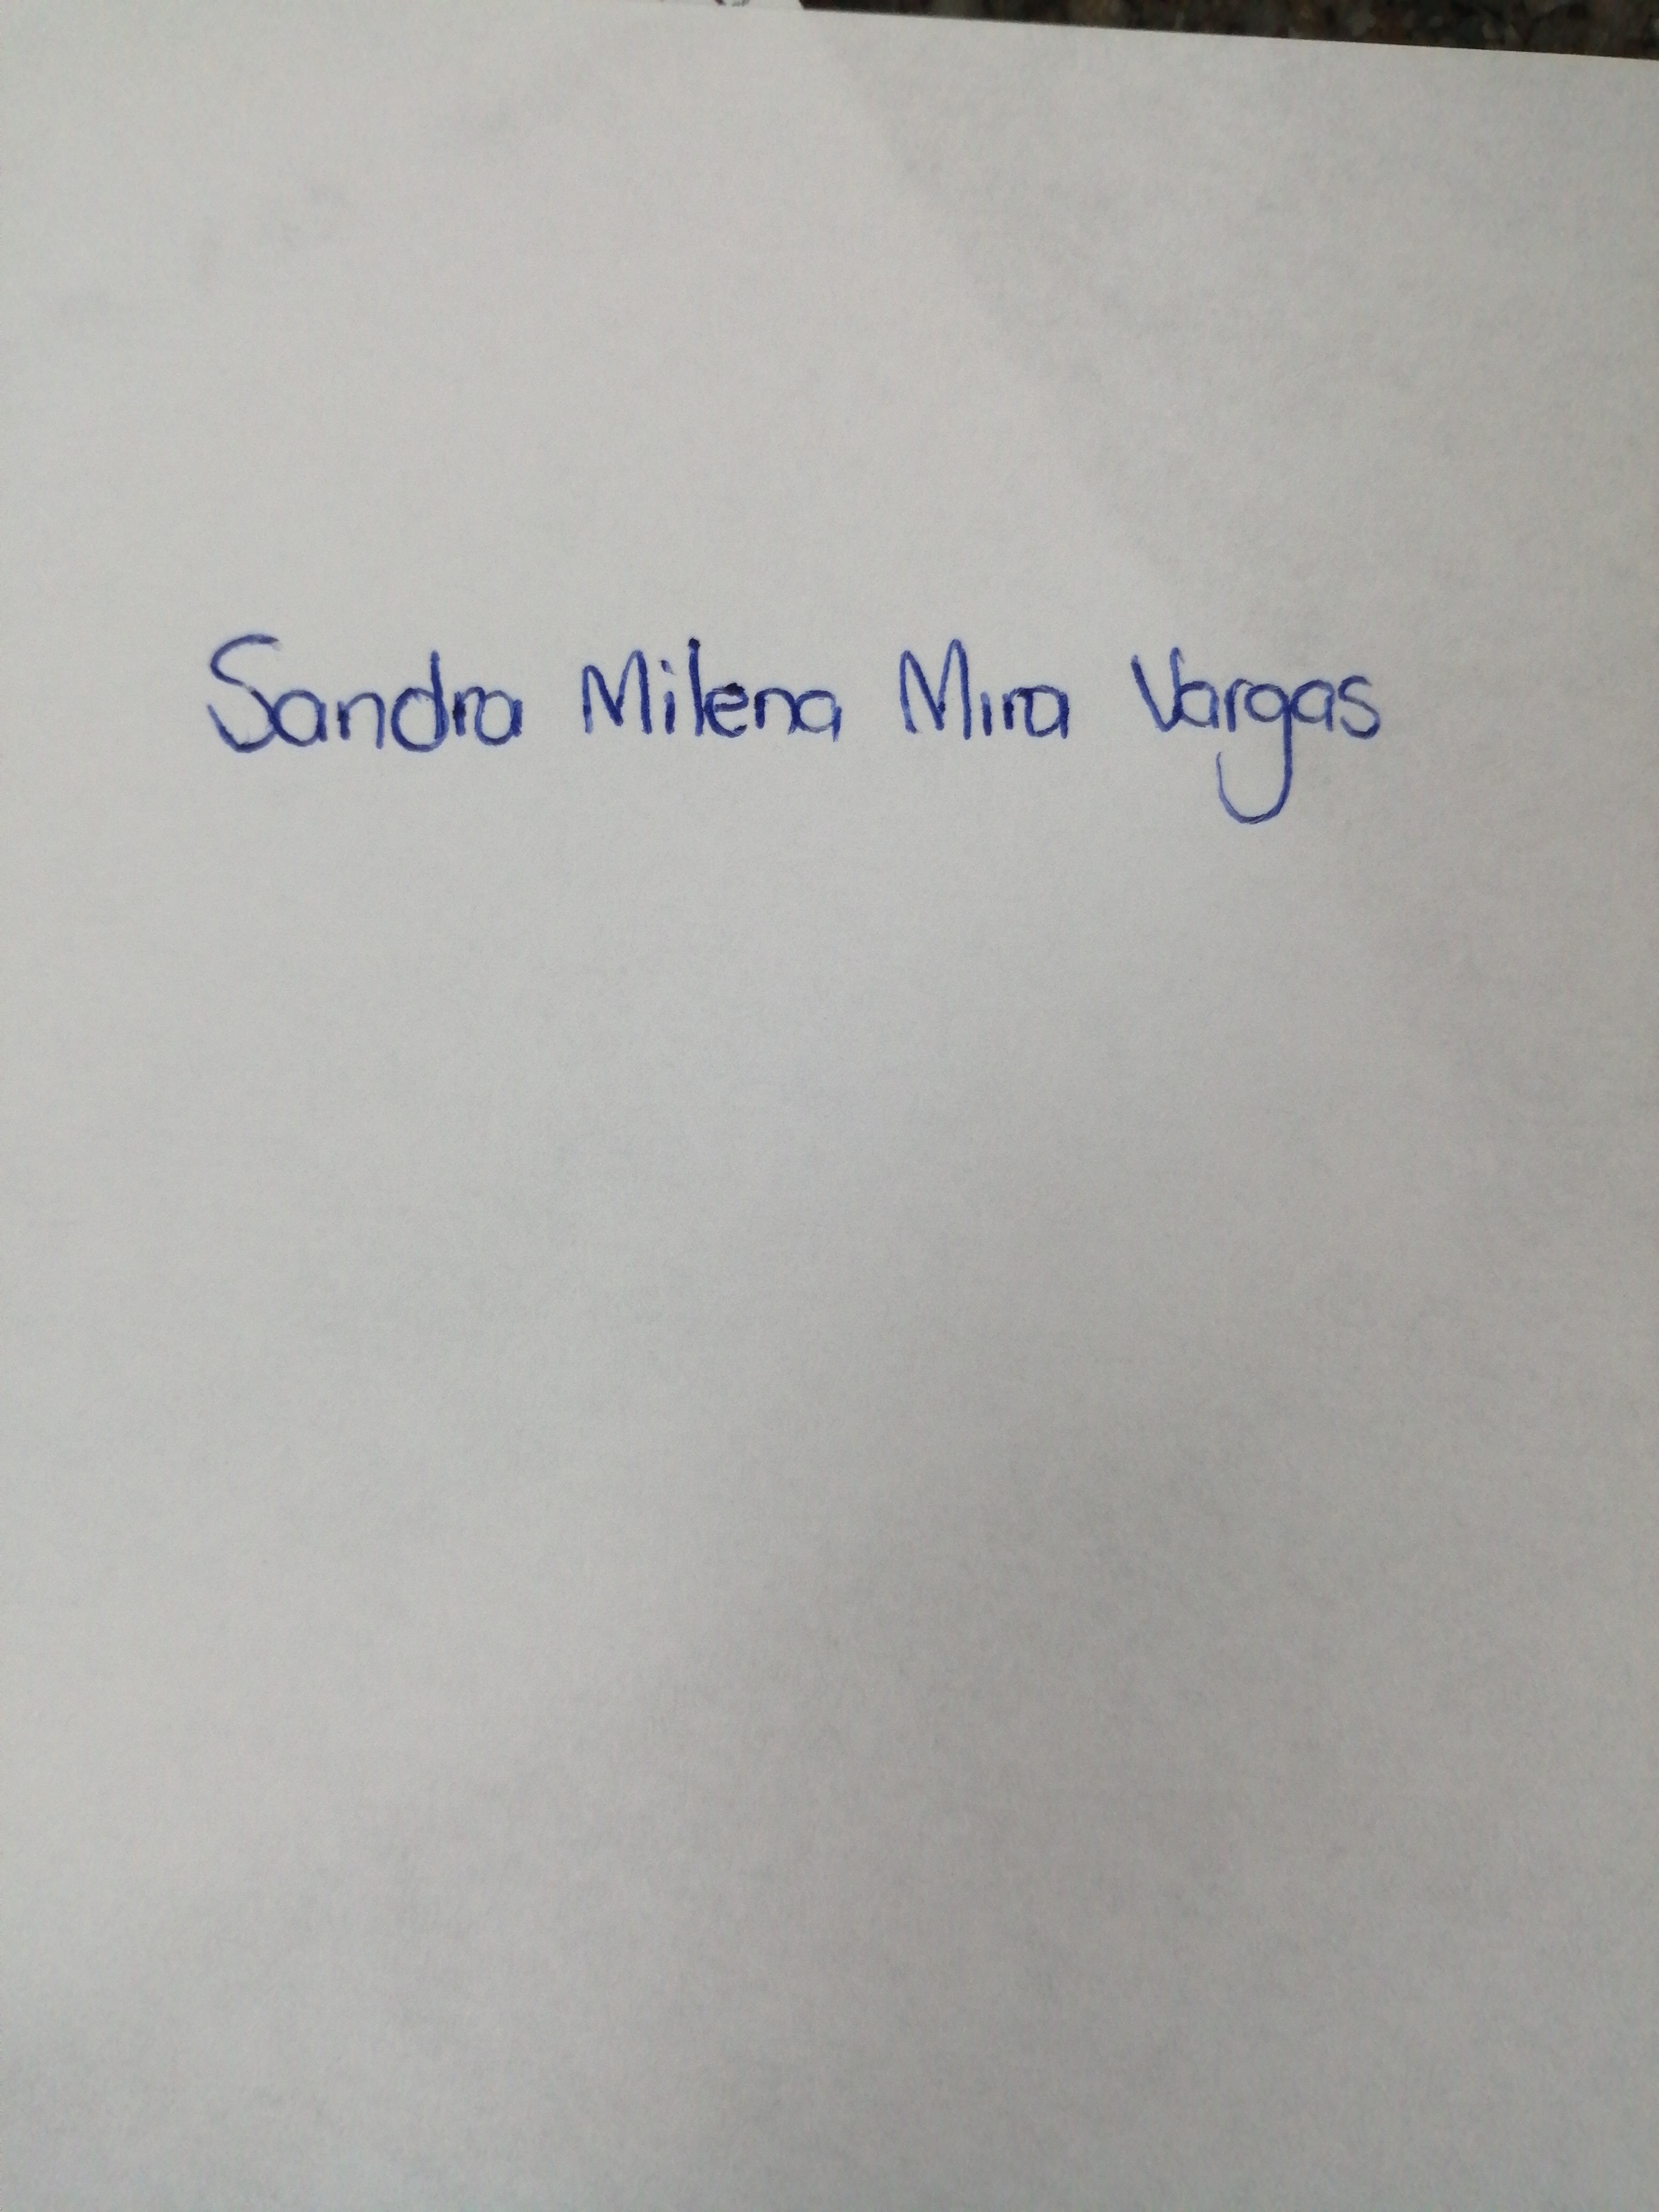 Sandra Milena Mira Vargas